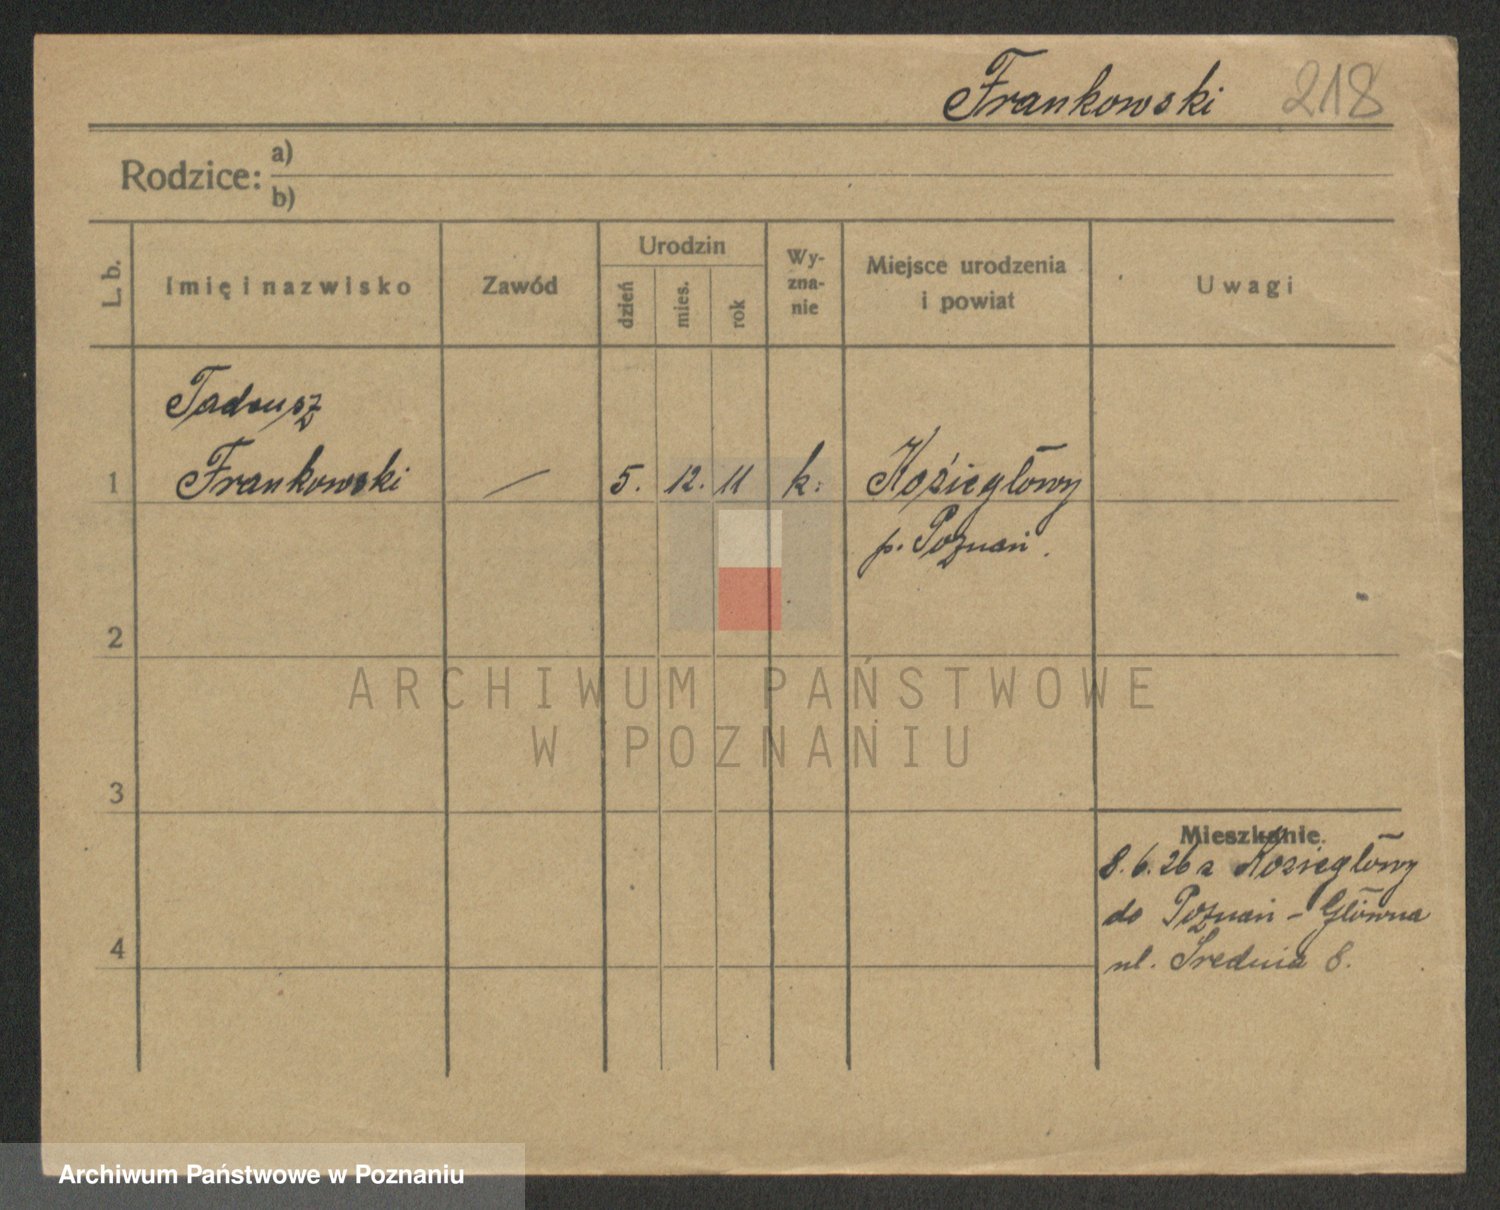 Frankowski 218
Rodzice: a)
b)
L. b.
Imię i nazwisko
Zawód
Urodzin
dzień
mies.
rok
Wy-
zna-
nie
Miejsce urodzenia
i powiat
Uwagi
Tadeusz
1 Frankowski — 5. 12. 11 k. Koziegłowy
p. Poznań.
2
ARCHIWUM PAŃSTWOWE
W POZNANIU
3
Mieszkanie.
8.6.26 z Koziegłowy
do Poznań - Główna
4
ul. Średnia 8.
Archiwum Państwowe w Poznaniu